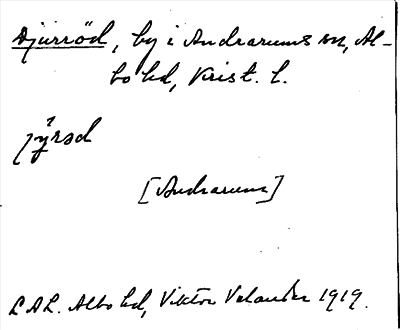 Djurröd, by i Andrarums sn, Al-
bo hd, Krist. l.
jÿrəd
[Andrarum]
LAL. Albo hd, Viktor Velander 1919.